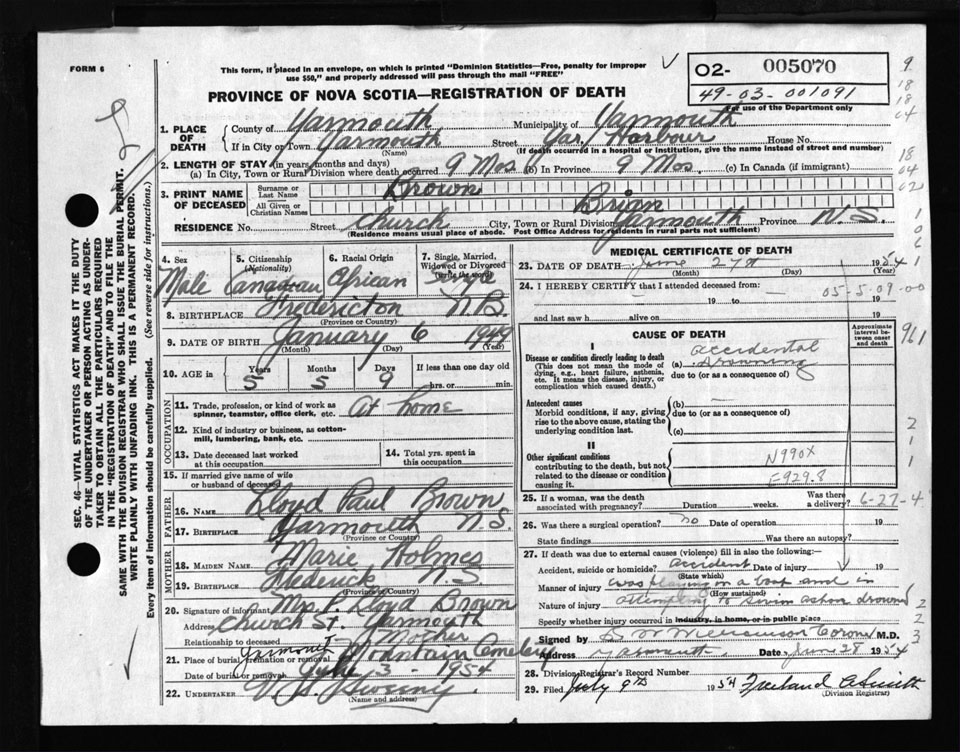 FORM 6
This form, if placed in an envelope, on which is printed "Dominion Statistics—Free, penalty for improper
use $50," and properly addressed will pass through the mail "FREE"
O2- 005070
49-03-001091
For use of the Department only
PROVINCE OF NOVA SCOTIA—REGISTRATION OF DEATH
1. PLACE OF DEATH
County of Yarmouth Municipality of Yarmouth
If in City or Town Yarmouth Street Yar, Harbour House No.
(Name) (If death occurred in a hospital or institution, give the name instead of street and number)
2. LENGTH OF STAY (in years, months and days)
(a) In City, Town or Rural Division where death occurred 9 Mos (b) In Province 9 Mos. (c) In Canada (if immigrant)
3. PRINT NAME OF DECEASED
Surname or Last Name Brown
All Given or Christian Names Brian
RESIDENCE No. Street Church City, Town or Rural Division Yarmouth Province N.S.
(Residence means usual place of abode. Post Office Address for residents in rural parts not sufficient)
4. Sex Male
5. Citizenship (Nationality) Canadian
6. Racial Origin African
7. Single, Married, Widowed or Divorced (write the word) Single
8. BIRTHPLACE Fredericton N.B.
(Province or Country)
9. DATE OF BIRTH January 6 1949
(Month) (Day) (Year)
10. AGE in Years 5 Months 5 Days 9 If less than one day old
hrs. or min.
OCCUPATION
11. Trade, profession, or kind of work as spinner, teamster, office clerk, etc. At home
12. Kind of industry or business, as cotton-mill, lumbering, bank, etc.
13. Date deceased last worked at this occupation
14. Total yrs. spent in this occupation
15. If married give name of wife or husband of deceased
FATHER
16. NAME Lloyd Paul Brown
17. BIRTHPLACE Yarmouth N.S.
(Province or Country)
MOTHER
18. MAIDEN NAME Marie Holmes
19. BIRTHPLACE N.S.
(Province or Country)
20. Signature of informant Mrs. Lloyd Brown
Address Church St. Yarmouth
Relationship to deceased Mother
21. Place of burial, cremation or removal Yarmouth Mountain Cemetery
Date of burial or removal July 3 - 1954
22. UNDERTAKER V. S. Sweeny
(Name and address)
MEDICAL CERTIFICATE OF DEATH
23. DATE OF DEATH June 27th 1954
(Month) (Day) (Year)
24. I HEREBY CERTIFY that I attended deceased from
19 to 19
05-5-09-00
and last saw h alive on 19
CAUSE OF DEATH
Approximate interval between onset and death
I
Disease or condition directly leading to death
(This does not mean the mode of dying, e.g., heart failure, asthenia, etc. It means the disease, injury, or complication which caused death.)
(a) accidental drowning
due to (or as a consequence of)
Antecedent causes
Morbid conditions, if any, giving rise to the above cause, stating the underlying condition last.
(b) —
due to (or as a consequence of)
(c)
II
Other significant conditions contributing to the death, but not related to the disease or condition causing it.
N990X
E929.8
25. If a woman, was the death associated with pregnancy? Duration weeks. Was there a delivery? 6-27-4
26. Was there a surgical operation? no Date of operation 19
State findings Was there an autopsy?
27. If death was due to external causes (violence) fill in also the following:—
Accident, suicide or homicide? accident Date of injury 19
(State which)
Manner of injury was playing in a boat and in
(How sustained)
Nature of injury attempting to swim ashore drowned
Specify whether injury occurred in industry, in home, or in public place
Signed by Coroner M.D.
Address Yarmouth Date June 28 1954
28. Division Registrar's Record Number
29. Filed July 9th 1954 Freeland A Smith
(Division Registrar)
SEC. 46—VITAL STATISTICS ACT MAKES IT THE DUTY
OF THE UNDERTAKER OR PERSON ACTING AS UNDER-
TAKER TO OBTAIN ALL THE PARTICULARS REQUIRED
IN THE "REGISTRATION OF DEATH" AND TO FILE THE
SAME WITH THE DIVISION REGISTRAR WHO SHALL ISSUE THE BURIAL PERMIT.
WRITE PLAINLY WITH UNFADING INK. THIS IS A PERMANENT RECORD.
Every item of information should be carefully supplied. (See reverse side for instructions.)
9
18
18
04
18
04
02
1
0
6
1
961
2
1
1
2
2
3